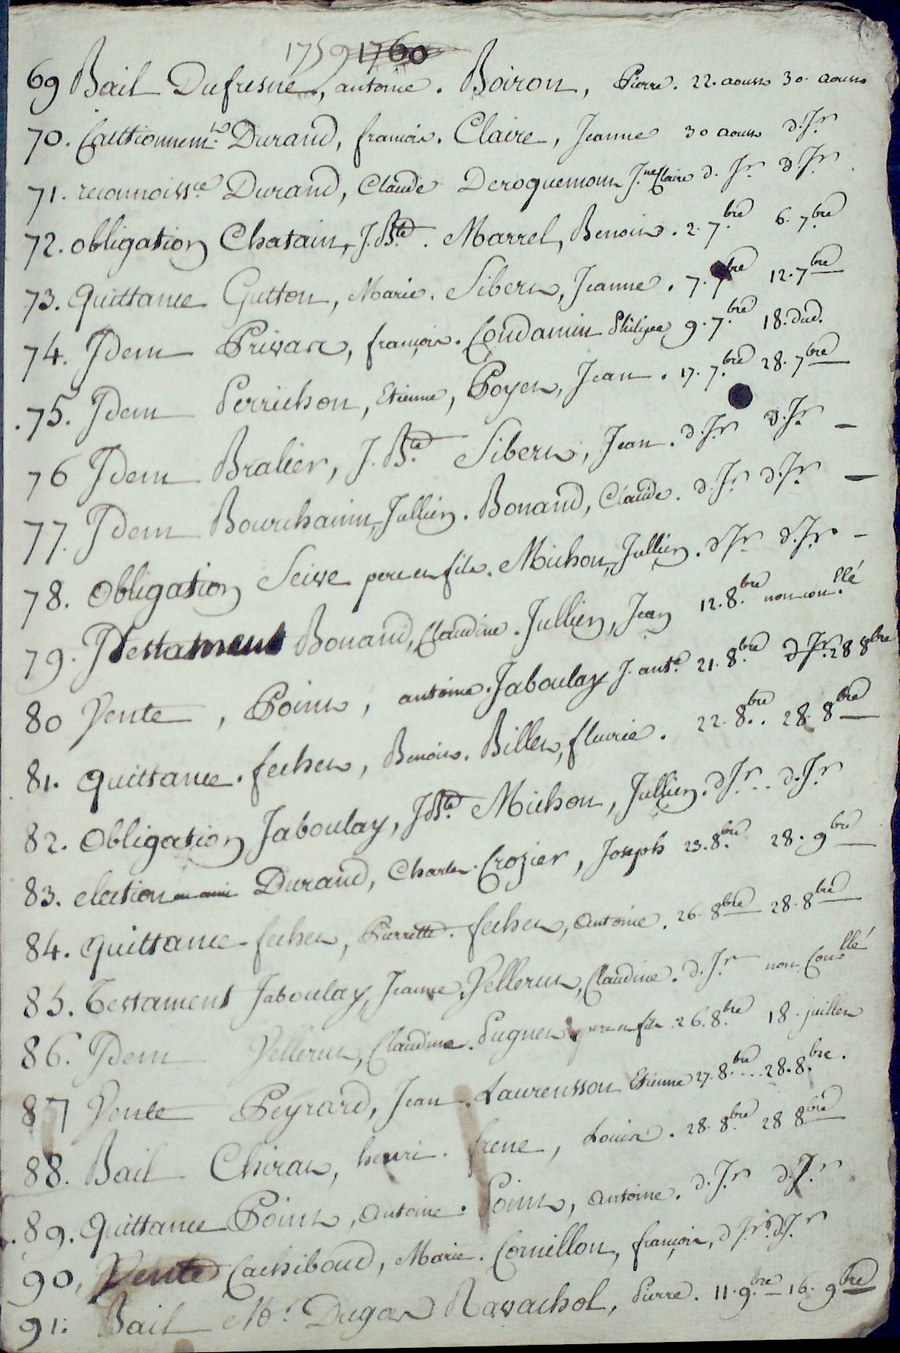 1759 1760
69 Bail Dufresne, antoine. Boiron, Pierre. 22. aoust 30. aoust
70. Cauttionnemt. Durand, francois. Claire, Jeanne 30 aoust d. Jr
71. reconnoissce Durand, Claude Deroquemont Jne Claire d. Jr d. Jr
72. obligation Chatain, J. Bte. Marrel, Benoist. 2. 7bre 6. 7bre
73. quittance Gutton, Marie. Sibert, Jeanne. 7. 7bre 12. 7bre
74. Idem Privat, françois. Condamin Philipe 9. 7bre 18. dud.
75. Idem Perrichon, Etienne, Poyet, Jean. 17. 7bre 28. 7bre
76 Idem Bralier, J. Bte. Sibert, Jean. d. Jr d. Jr —
77. Idem Bourchanin, Jullien. Bonand, Claude. d. Jr d. Jr —
78. Obligation Seive pere et fils. Michon, Jullien. d. Jr d. Jr —
79. Testament Bonand, Claudine. Jullien, Jean 12. 8bre non conllé
80 Vente, Point, antoine. Jaboulay J. ante 21. 8bre d. Jr 28 8bre
81. quittance. fechet, Benoist. Billet, fleurie. 22. 8bre. 28. 8bre
82. Obligation Jaboulay, J. Bte. Michon, Jullien. d. Jr.. d. Jr
83. election en ami Durand, Charles. Crozier, Joseph 23. 8bre 28. 9bre
84. quittance fechet, Pierrette. fechet, antoine. 26. 8bre 28. 8bre
85. testament Jaboulay, Jeanne. Vellerut, Claudine. d. Jr non Conllé
86. Idem Vellerut, Claudine. Pugnet pere et fils. 26. 8bre 18. juillet
87 Vente Peyrard, Jean. Laurensson Etienne 27. 8bre... 28. 8bre.
88. Bail Chirat, henri. frene, Louis. 28. 8bre 28 8bre
89. quittance Point, antoine. Point, antoine. d. Jr d. Jr
90, Vente Cachiboud, Marie. Cornillon, françois, d Jr d. Jr
91. Bail Mr. Dugas Ravachol, Pierre. 11. 9bre 16. 9bre